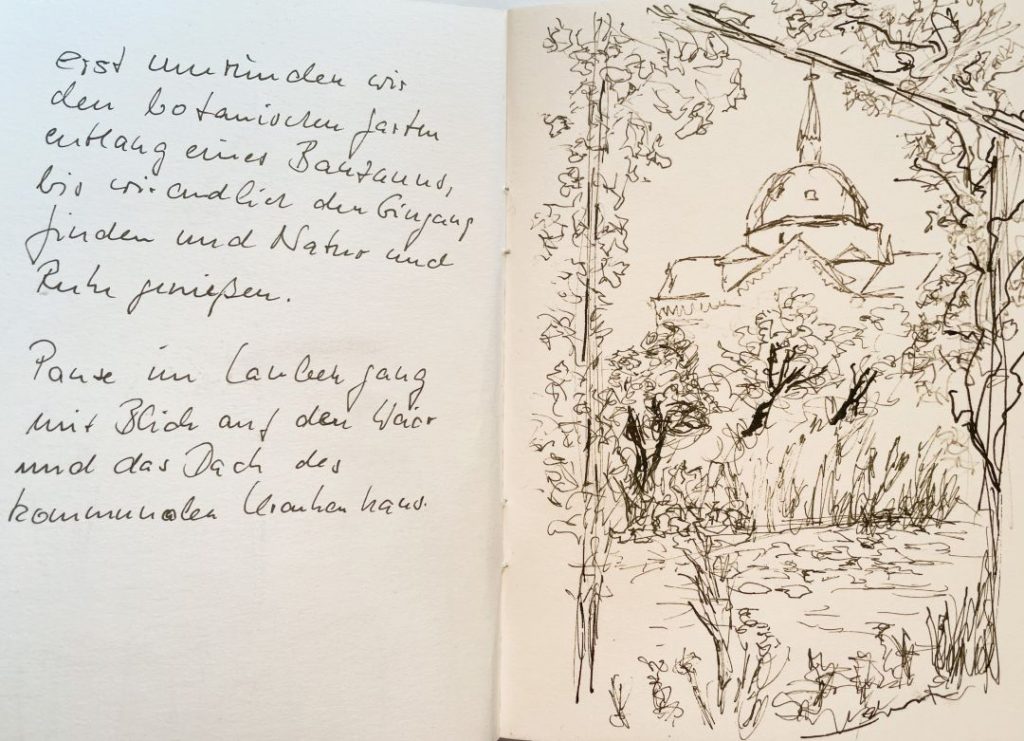 erst umrunden wir
den botanischen Garten
entlang eines Bauzauns,
bis wir endlich den Eingang
finden und Natur und
Ruhe genießen.
Pause im Laubengang
mit Blick auf den Weiher
und das Dach des
kommunalen Krankenhaus.